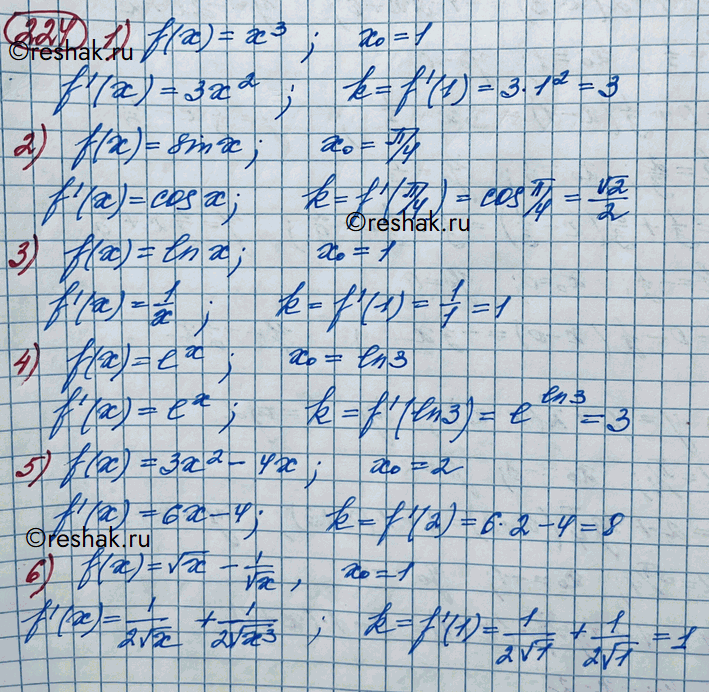 224 1) f(x) = x³ ; x₀ = 1
©reshak.ru
f'(x) = 3x² ; k = f'(1) = 3·1² = 3
2) f(x) = sin x ; x₀ = π/4
f'(x) = cos x ; k = f'(π/4) = cos π/4 = √2/2
©reshak.ru
3) f(x) = ln x ; x₀ = 1
f'(x) = 1/x ; k = f'(1) = 1/1 = 1
4) f(x) = e^x ; x₀ = ln3
f'(x) = e^x ; k = f'(ln3) = e^ln3 = 3
5) f(x) = 3x² – 4x ; x₀ = 2
f'(x) = 6x – 4 ; k = f'(2) = 6·2 – 4 = 8
©reshak.ru
6) f(x) = √x – 1/√x , x₀ = 1
f'(x) = 1/2√x + 1/2√x³ ; k = f'(1) = 1/2√1 + 1/2√1 = 1